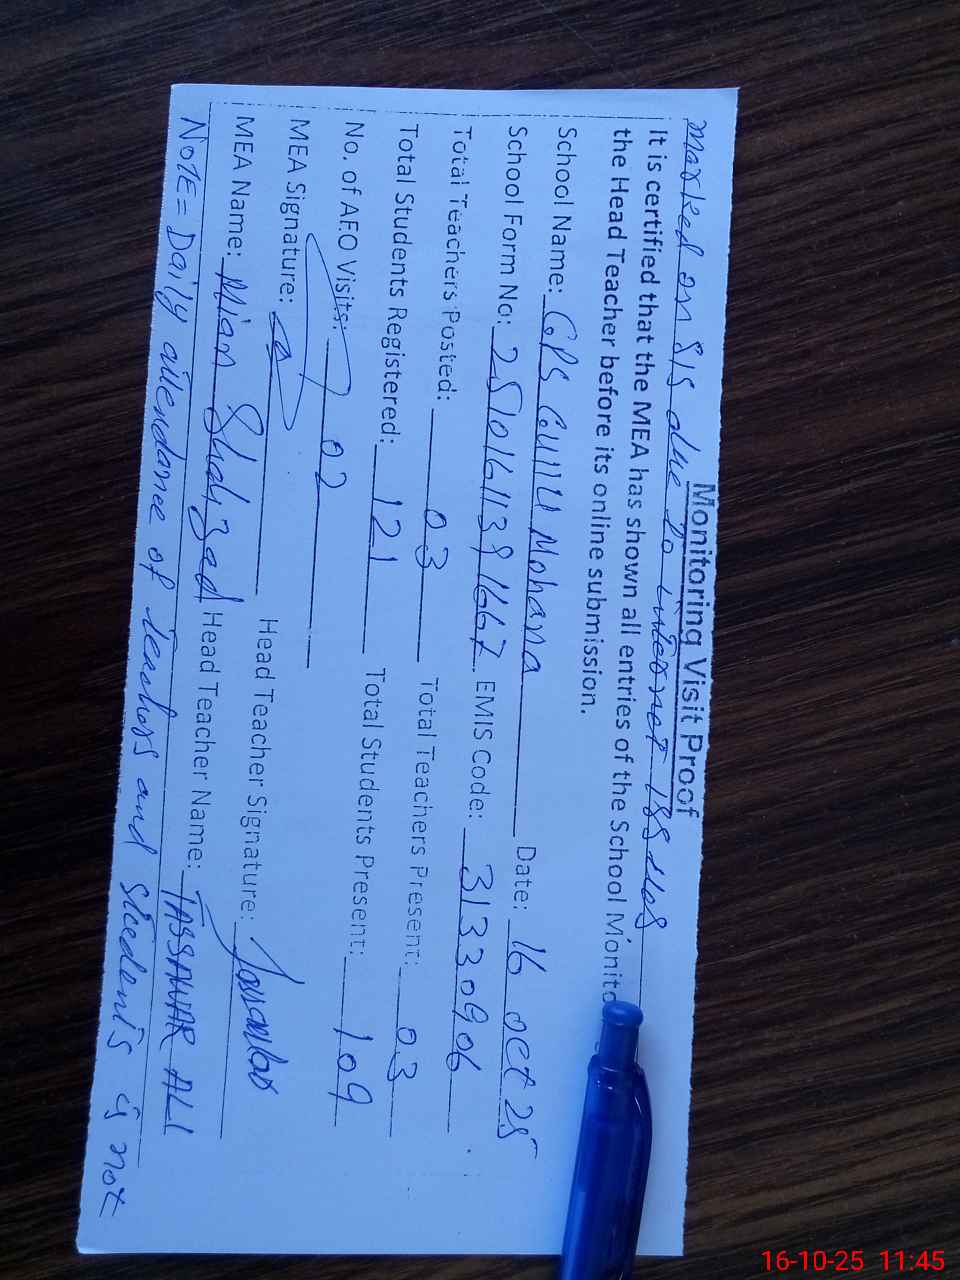 Monitoring Visit Proof
marked on SIS due to internet issues
It is certified that the MEA has shown all entries of the School Monito
the Head Teacher before its online submission.
School Name: GPS Gulli Mohana Date: 16 oct 25
School Form No: 25101611391667 EMIS Code: 31330906
Total Teachers Posted: 03 Total Teachers Present: 03
Total Students Registered: 121 Total Students Present: 109
No. of AEO Visits: 02
MEA Signature: Head Teacher Signature:
MEA Name: Mian Shahzad Head Teacher Name: TASSAWAR ALI
NOTE = Daily attendance of teachers and students is not
16-10-25 11:45